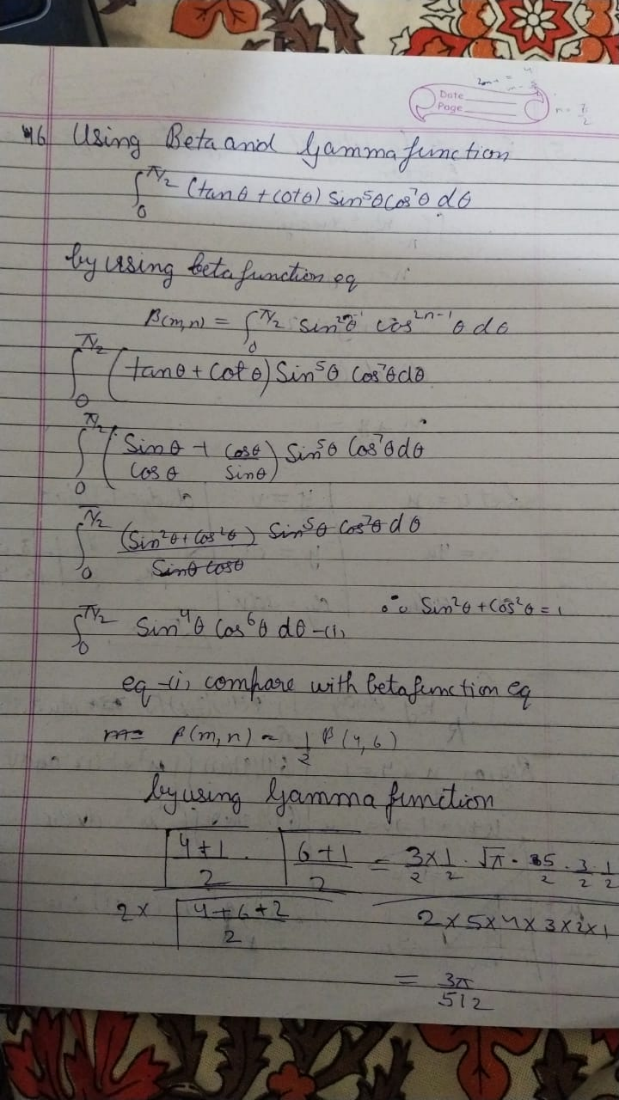 Date
Page
46 Using Beta and Gamma function
∫₀^π/2 (tanθ + cotθ) sin⁵θ cos⁷θ dθ
by using beta function eq
β(m,n) = ∫₀^π/2 sin²θ cos²ⁿ⁻¹ θ dθ
∫₀^π/2 (tanθ + cot θ) Sin⁵θ Cos⁷θ dθ
∫₀^π/2 (Sinθ/Cosθ + Cosθ/Sinθ) Sin⁵θ Cos⁷θ dθ
∫₀^π/2 (Sin²θ + Cos²θ)/(Sinθ Cosθ) Sin⁵θ Cos⁷θ dθ
∵ Sin²θ + Cos²θ = 1
∫₀^π/2 Sin⁴θ Cos⁶θ dθ -(i)
eq -(i) compare with beta function eq
m= β(m,n) = 1/2 β(4,6)
by using Gamma function
Γ(4+1)/2 · Γ(6+1)/2 / 2× Γ(4+6+2)/2 = 3/2 × 1/2 · √π · 5/2 · 3/2 · 1/2 / 2×5×4×3×2×1
= 3π/512